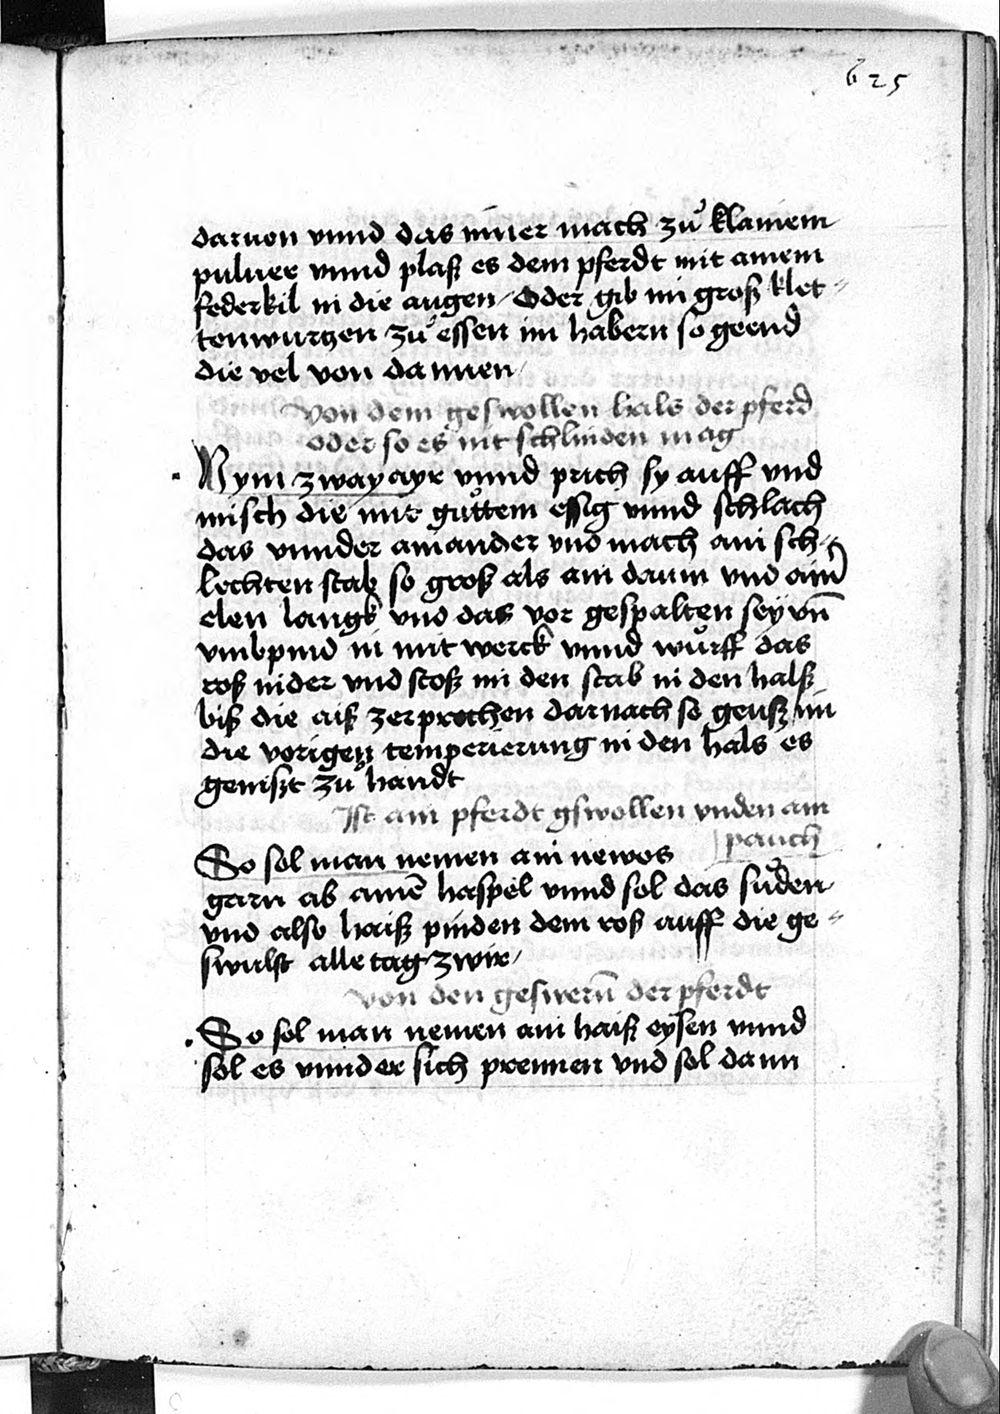 625
daruon vnnd das inner mach zů klainem
puluer vnnd plaß es dem pferdt mit ainem
federkil in die augen / Oder gib im groß klet-
tenwurtzen zů essen im habern so geend
die vel von dannen /
Von dem geswollen hals der pferd
oder so es nit schlinden mag
Nym zway ayr vnnd prich sy auff vnd
misch die mit gůttem essig vnnd schlach
das vnnder ainander vnd mach ain sch-
lechten stab so groß als ain daum vnd ainr
elen langk vnd das vor gespalten sey vn̄
vmbpind in mit werck vnnd würff das
roß nider vnd stoß im den stab in den halß
biß die aiß zerprochen darnach so geuß im
die vorigen temperierung in den hals es
genißt zů handt
Ist ain pferdt gswollen vnden am
pauch
So sol man nemen ain newes
garn ab ainē haspel vnnd sol das süden
vnd also haiß pinden dem roß auff die ge-
swulst alle tag zwir /
Von den geswern̄ der pferdt
So sol man nemen ain haiß eysen vnnd
sol es vnnder sich prennen vnd sol dann